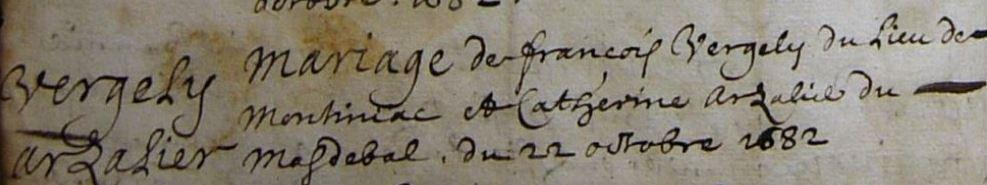 octobre. 1682.
Vergely
arzalier
Mariage de françois Vergely du Lieu de
Montiniac et Catherine arzalié du
Masdebal. du 22 octobre 1682